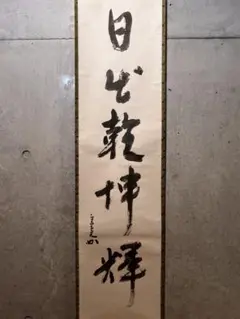 日出乾坤輝